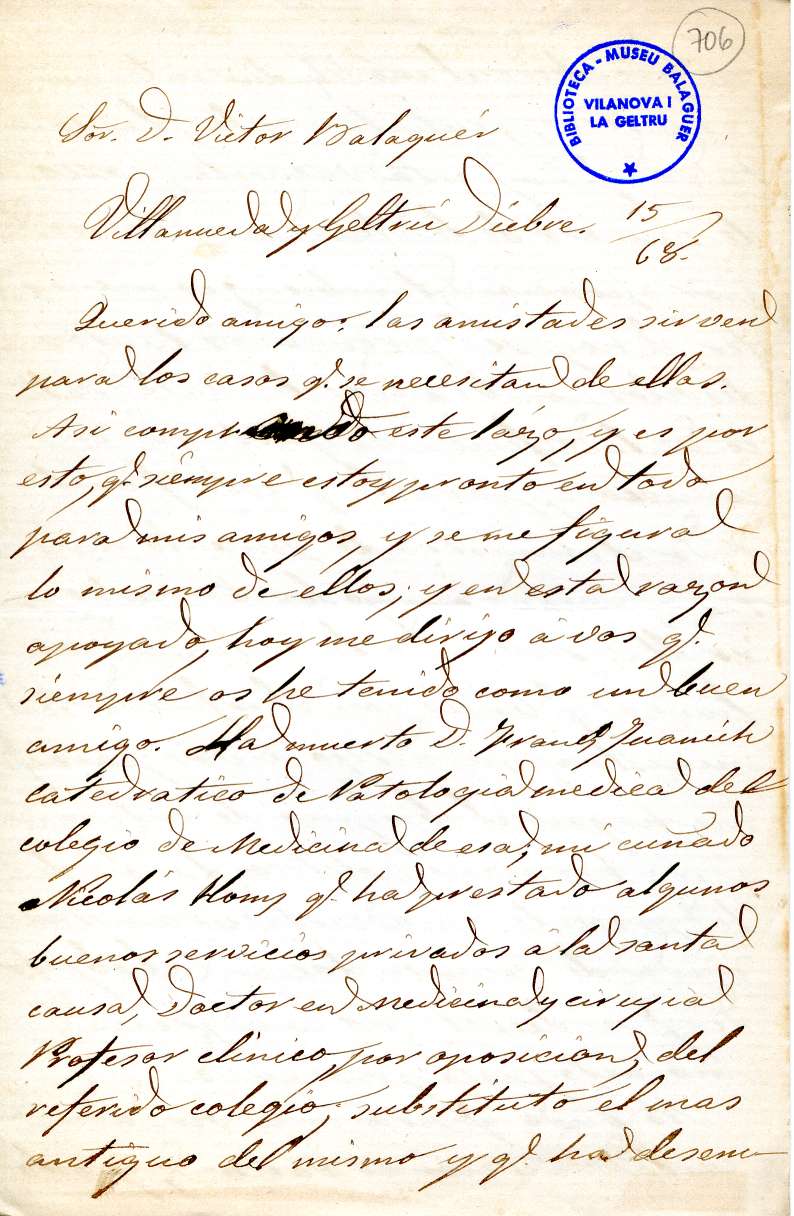 706
BIBLIOTECA - MUSEU BALAGUER
VILANOVA I
LA GELTRU
Sor. D. Victor Balaguér
Villanueva y Geltrú Dicbre. 15/68.
Querido amigo: las amistades sirven
para los casos q.e se necesitan de ellas.
Asi comprendo este lazo, y es por
esto, q.e siempre estoy pronto en todo
para mis amigos, y se me figura
lo mismo de ellos; y en esta razon
apoyado, hoy me dirijo á vos q.e
siempre os he tenido como un buen
amigo. Ha muerto D. Juanich
catedratico de Patologia medica del
colegio de Medicina de esa; mi cuñado
Nicolás Homs q.e ha prestado algunos
buenos servicios privados á la santa
causa, Doctor en medicina y cirujia
Profesor clinico, por oposicion, del
referido colegio; substituto el mas
antiguo del mismo y q.e ha desem-